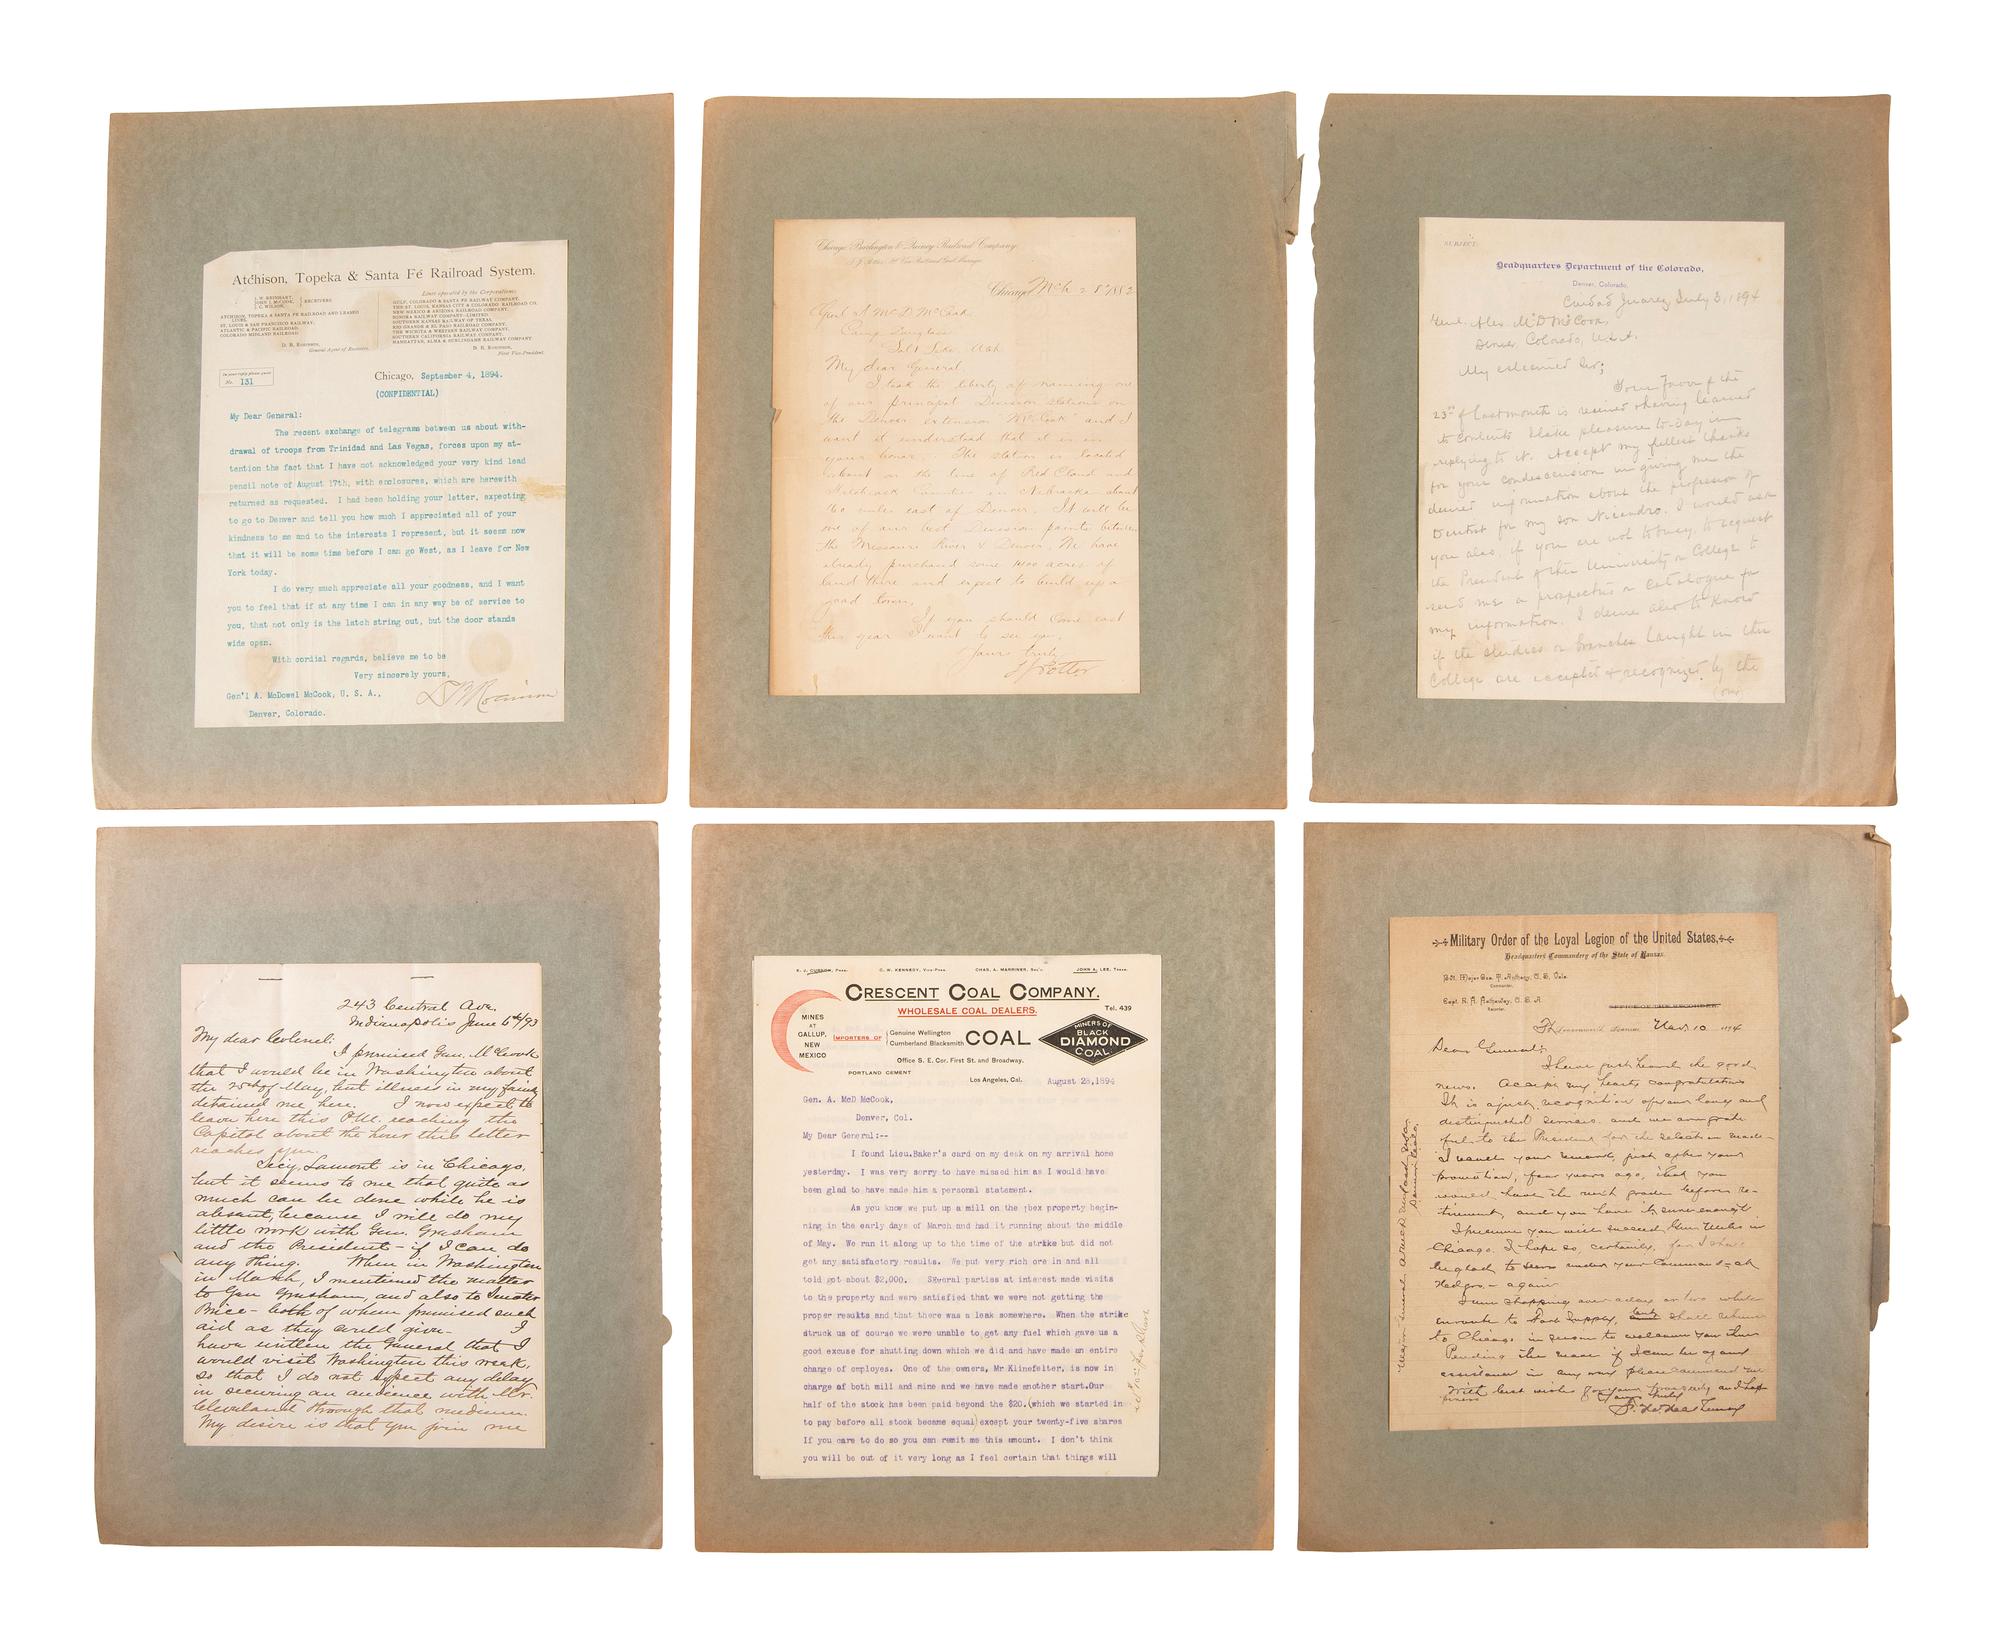 Atchison, Topeka & Santa Fé Railroad System.
J. W. REINHART,
JOHN J. McCOOK,
J. C. WILSON,
RECEIVERS
ATCHISON, TOPEKA & SANTA FE RAILROAD AND LEASED
LINES.
ST. LOUIS & SAN FRANCISCO RAILWAY.
ATLANTIC & PACIFIC RAILROAD.
COLORADO MIDLAND RAILROAD.
D. B. ROBINSON,
General Agent of Receivers.
Lines operated by the Corporations:
GULF, COLORADO & SANTA FE RAILWAY COMPANY.
THE ST. LOUIS, KANSAS CITY & COLORADO RAILROAD CO.
NEW MEXICO & ARIZONA RAILROAD COMPANY.
SONORA RAILWAY COMPANY—LIMITED.
SOUTHERN KANSAS RAILWAY OF TEXAS.
RIO GRANDE & EL PASO RAILROAD COMPANY.
THE WICHITA & WESTERN RAILWAY COMPANY.
SOUTHERN CALIFORNIA RAILWAY COMPANY.
MANHATTAN, ALMA & BURLINGAME RAILWAY COMPANY.
D. B. ROBINSON,
First Vice-President.
In your reply please quote
No. 131
Chicago, September 4, 1894.
(CONFIDENTIAL)
My Dear General:
The recent exchange of telegrams between us about with-
drawal of troops from Trinidad and Las Vegas, forces upon my at-
tention the fact that I have not acknowledged your very kind lead
pencil note of August 17th, with enclosures, which are herewith
returned as requested. I had been holding your letter, expecting
to go to Denver and tell you how much I appreciated all of your
kindness to me and to the interests I represent, but it seems now
that it will be some time before I can go West, as I leave for New
York today.
I do very much appreciate all your goodness, and I want
you to feel that if at any time I can in any way be of service to
you, that not only is the latch string out, but the door stands
wide open.
With cordial regards, believe me to be
Very sincerely yours,
D B Robinson
Gen'l A. McDowel McCook, U. S. A.,
Denver, Colorado.
Chicago Burlington & Quincy Railroad Company.
Chicago, Mch 28 1882
Genl A McD McCook
Camp Douglass
Salt Lake, Utah
My dear General
I took the liberty of naming one
of our principal Division stations on
the Denver extension "McCook" and I
want it understood that it is in
your honor. The station is located
about on the line of Red Cloud and
Hitchcock Counties in Nebraska about
miles east of Denver. It will be
one of our best Division points between
the Missouri River & Denver. We have
already purchased some 1400 acres of
land there and expect to build up a
good town.
If you should come east
this year I want to see you.
Yours truly
T J Potter
SUBJECT:
Headquarters Department of the Colorado,
Denver, Colorado.
Ciudad Juarez July 3, 1894
Genl. Alex. McD McCook,
Denver, Colorado, U.S.A.
My esteemed Sir;
Your favor of the
23rd of last month is received & having learned
its contents I take pleasure to-day in
replying to it. Accept my fullest thanks
for your condescension in giving me the
desired information about the profession of
Dentist for my son Nicandro. I would ask
you also, if you are not too busy, to request
the President of the University or College to
send me a prospectus or catalogue for
my information. I desire also to know
if the studies or branches taught in the
College are accepted & recognized by the
(over)
243 Central Ave.
Indianapolis June 6th/93
My dear Colonel:
I promised Gen. McCook
that I would be in Washington about
the 25th of May, but illness in my family
detained me here. I now expect to
leave here this P.M. reaching the
Capitol about the hour this letter
reaches you.
Secy. Lamont is in Chicago,
but it seems to me that quite as
much can be done while he is
absent, because I will do my
little work with Gen. Gresham
and the President – if I can do
any thing. When in Washington
in March, I mentioned the matter
to Gen Gresham, and also to Senator
Brice – both of whom promised such
aid as they could give – I
have written the General that I
would visit Washington this week,
so that I do not expect any delay
in securing an audience with Mr.
Cleveland through that medium.
My desire is that you join me
E. J. CURSON, Pres.
C. W. KENNEDY, Vice-Pres.
CHAS. A. MARRINER, Sec'y.
JOHN A. LEE, Treas.
CRESCENT COAL COMPANY.
WHOLESALE COAL DEALERS.
Tel. 439
MINES
AT
GALLUP,
NEW
MEXICO
IMPORTERS OF
Genuine Wellington
Cumberland Blacksmith
COAL
MINERS OF
BLACK
DIAMOND
COAL.
Office S. E. Cor. First St. and Broadway.
PORTLAND CEMENT
Los Angeles, Cal.
August 28,1894
Gen. A. McD McCook,
Denver, Col.
My Dear General:--
I found Lieu.Baker's card on my desk on my arrival home
yesterday. I was very sorry to have missed him as I would have
been glad to have made him a personal statement.
As you know we put up a mill on the ibex property begin-
ning in the early days of March and had it running about the middle
of May. We ran it along up to the time of the strike but did not
get any satisfactory results. We put very rich ore in and all
told got about $2,000. SEveral parties at interest made visits
to the property and were satisfied that we were not getting the
proper results and that there was a leak somewhere. When the strike
struck us of course we were unable to get any fuel which gave us a
good excuse for shutting down which we did and have made an entire
change of employes. One of the owners, Mr Klinefelter, is now in
charge of both mill and mine and we have made another start.Our
half of the stock has been paid beyond the $20.(which we started in
to pay before all stock became equal)except your twenty-five shares
If you care to do so you can remit me this amount. I don't think
you will be out of it very long as I feel certain that things will
Military Order of the Loyal Legion of the United States,
Headquarters Commandery of the State of Kansas.
Bvt. Major Geo. T. Anthony, U. S. Vols.
Commander.
Capt. R. A. Hathaway, U. S. A.
Recorder.
OFFICE OF THE RECORDER.
Ft Leavenworth Kansas Nov. 10 1894
Dear General:
I have just heard the good
news. Accept my hearty congratulations
It is a just recognition of your long and
distinguished services and we are grate-
ful to the President for the selection made –
promotion, four years ago, that you
would have the next grade before re-
tirement, and you have it, sure enough
I presume you will succeed Gen Miles in
Chicago. I hope so, certainly, for I shall
be glad to serve under your command – at
Hdqrs – again
I am stopping over a day or two while
enroute to Fort Supply, but shall return
to Chicago in season to welcome you there
Pending the move if I can be of any
assistance in any way please command me
With best wishes for your prosperity and hap-
piness
Yours truly